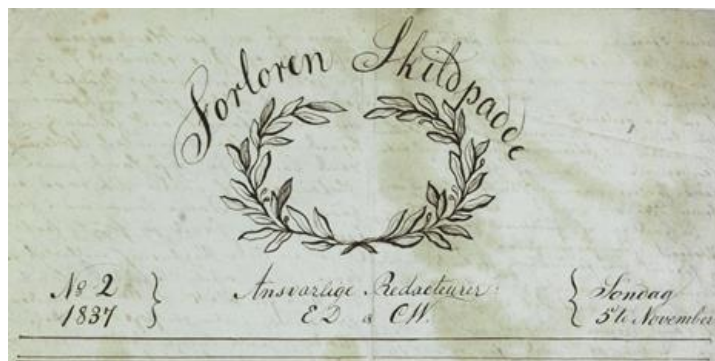 Forloren Skildpadde
No 2
1837
Ansvarlige Redacteurer:
E.D. & C.W.
Søndag
5te November